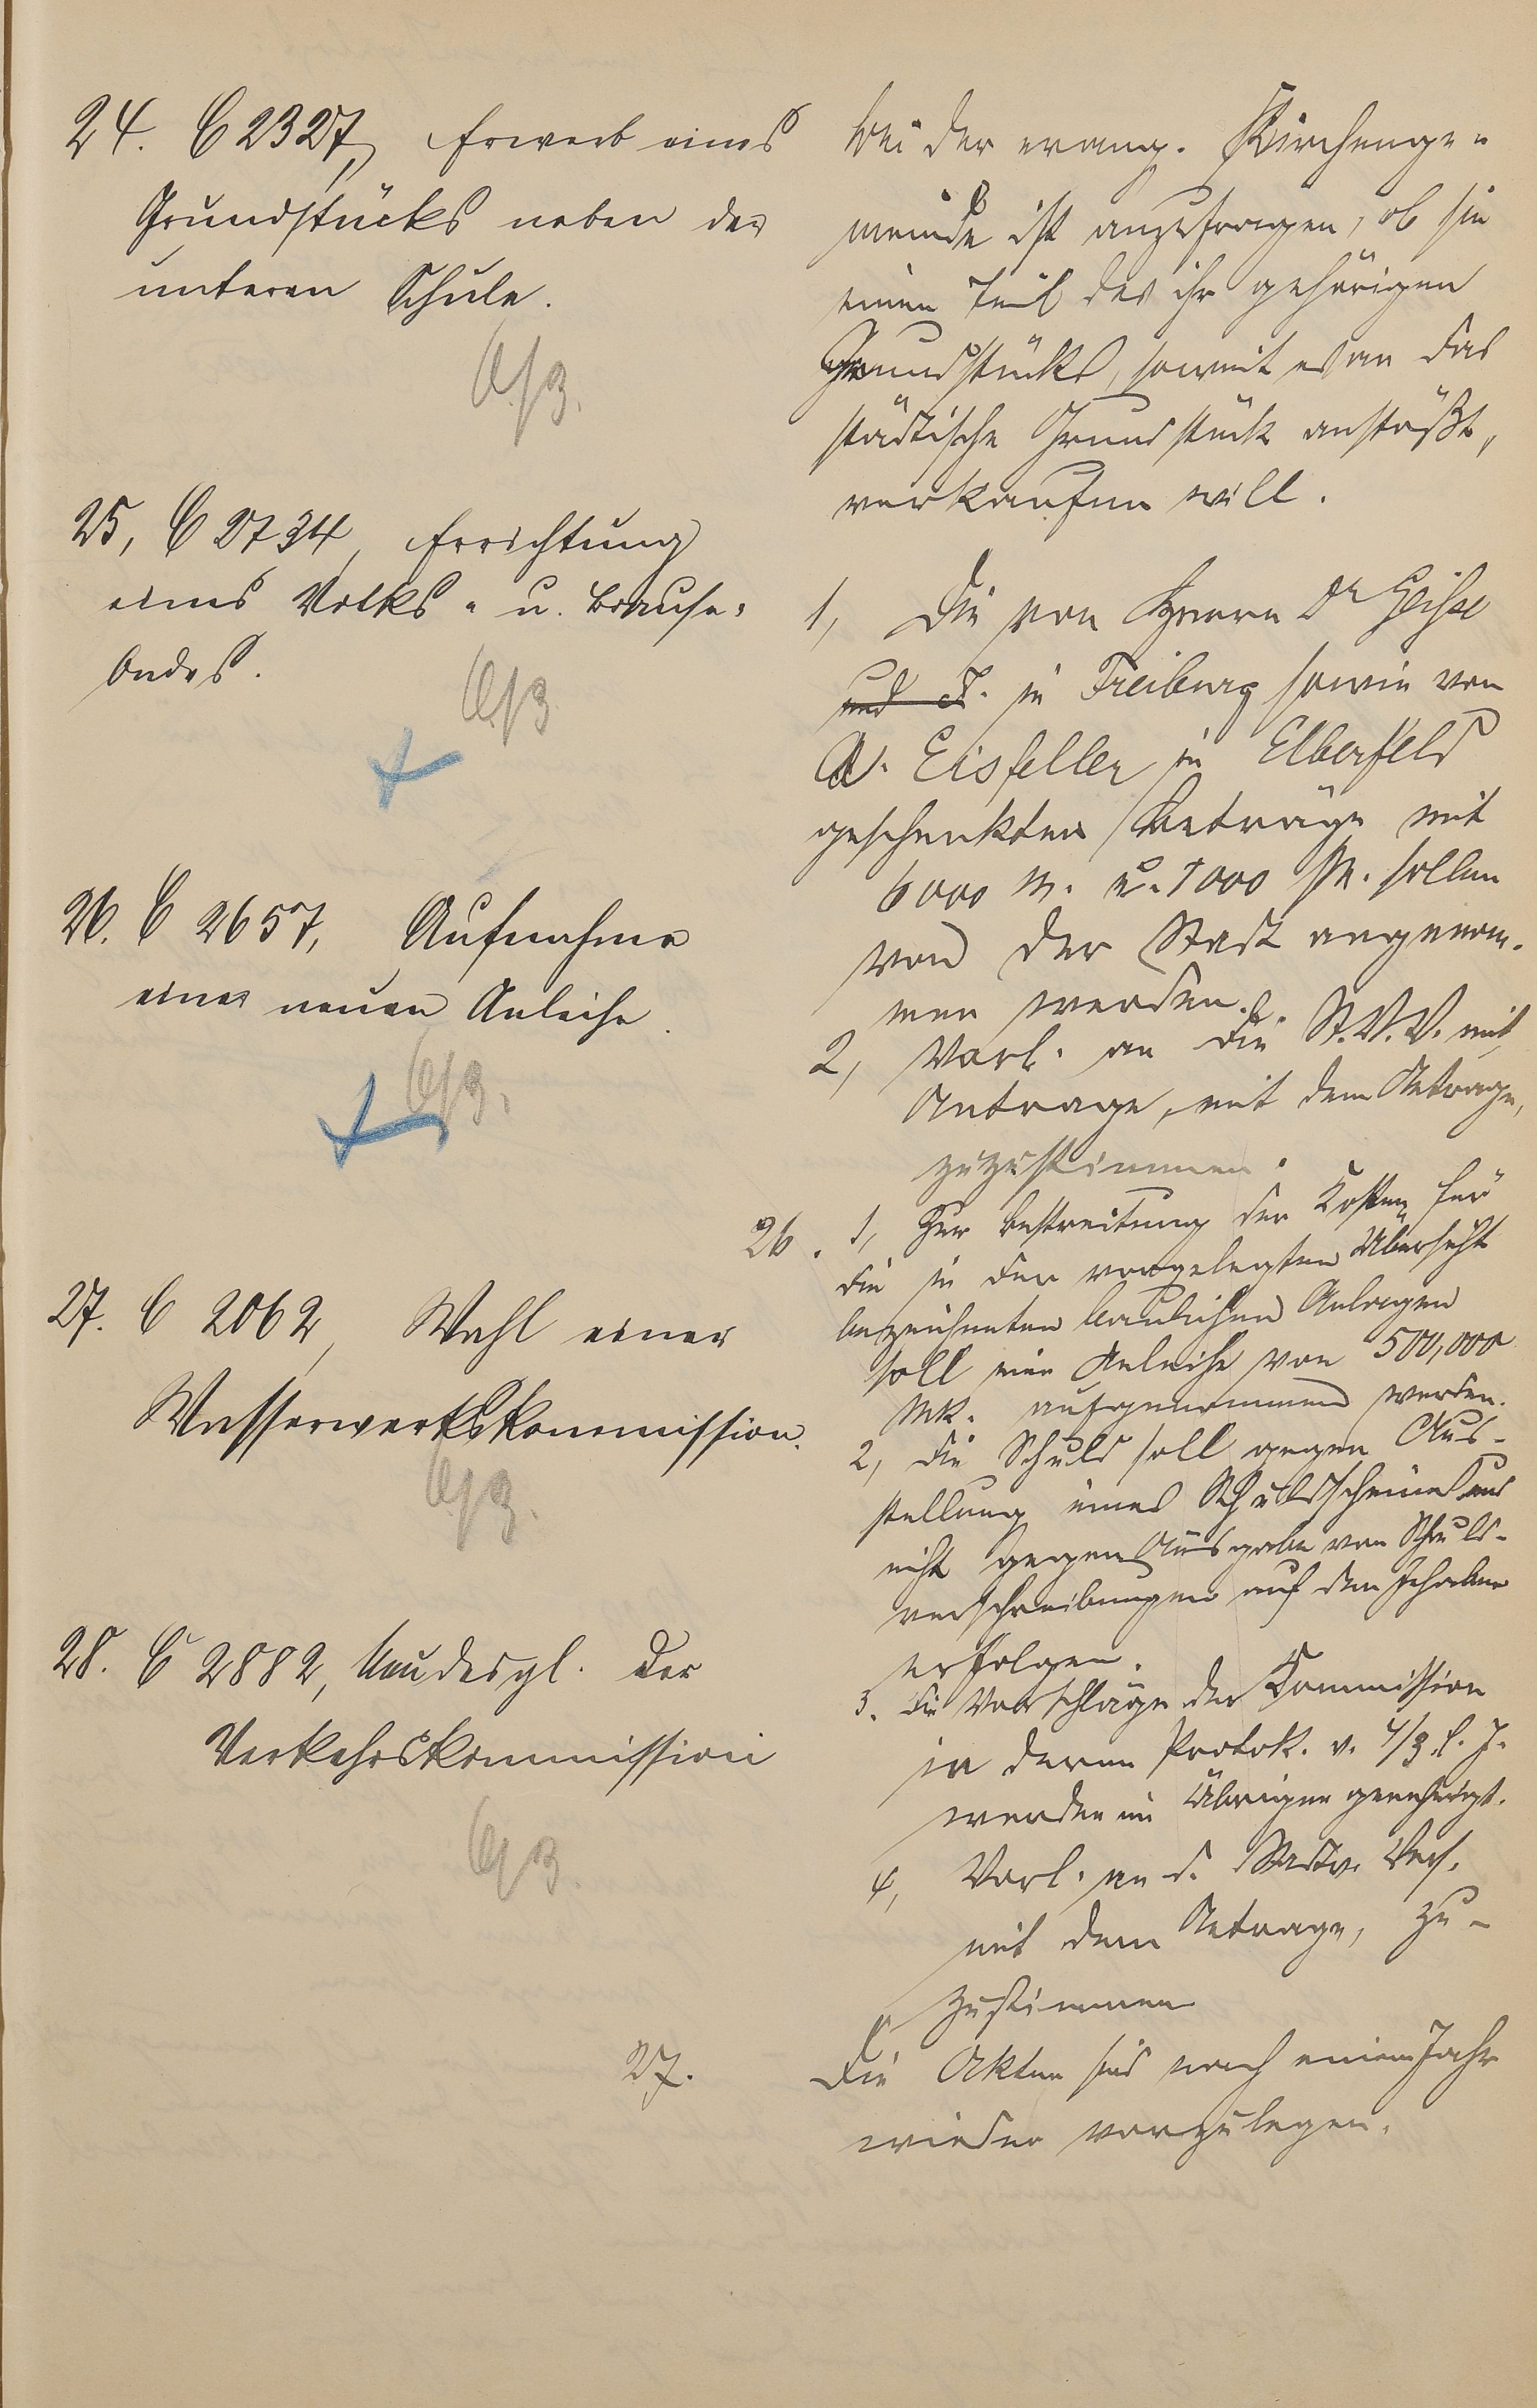 24. C 2327, Erwerb eines
Grundstücks neben der
unteren Schule.
25, C 2734, Errichtung
eines Volks- u. Brause-
bades.
26. C 2657, Aufnahme
einer neuen Anleihe.
27. C 2062, Wahl einer
Wasserwerkskommission.
28. C 2882, desgl. der
Verkehrskommission
Bei der evang. Kirchenge-
meinde ist anzufragen, ob sie
einen Teil des ihr gehörigen
Grundstücks, soweit es an das
städtische Grundstück anstößt,
verkaufen will.
1, Die von Herrn Dr
und in Freiburg sowie von
A. Eisfeller in Elberfeld
geschenkten Beträge mit
6000 M. u. 1000 M. sollen
von der Stadt angenom-
men werden.
2, Vorl. an die St.V.V. mit
Antrage, mit dem Antrage,
zuzustimmen.
26. 1, Zur Bestreitung der Kosten für
die in der vorgelegten Übersicht
bezeichneten baulichen Anlagen
soll eine Anleihe von 500,000
Mk. aufgenommen werden.
2, Die Schuld soll gegen Aus-
stellung eines Schuldscheines und
nicht gegen Ausgabe von Schuld-
verschreibungen auf den Inhaber
erfolgen.
3. Die Vorschläge der Kommission
in deren Protok. v. 4/3. l. J.
werden im Übrigen genehmigt.
4, Vorl. an d. Stadtv. Vers.
mit dem Antrage, zu-
zustimmen
27. Die Akten sind nach einem Jahr
wieder vorzulegen.